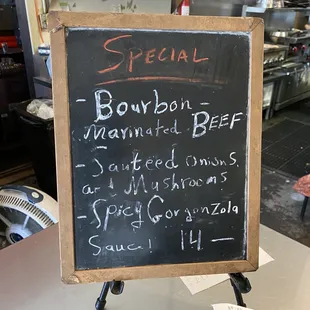 Special
- Bourbon -
Marinated BEEF
- Sauteed onions
and Mushrooms
- Spicy Gorgonzola
Sauce! 14 —